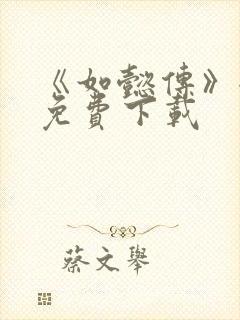 《如懿傳》
免費下載
蔡文舉